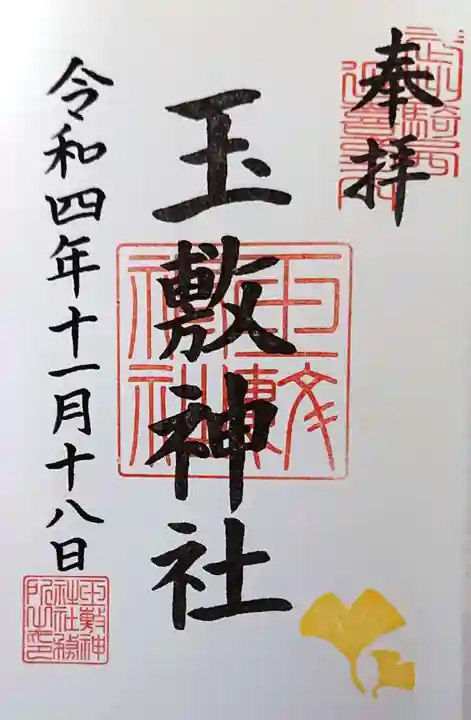 奉拝
玉敷神社
令和四年十一月十八日
玉敷神
社社務
所之印